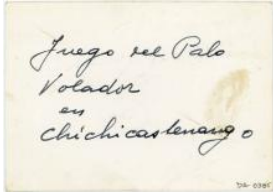 Juego del Palo
Volador
en
Chichicastenango
DA 0385